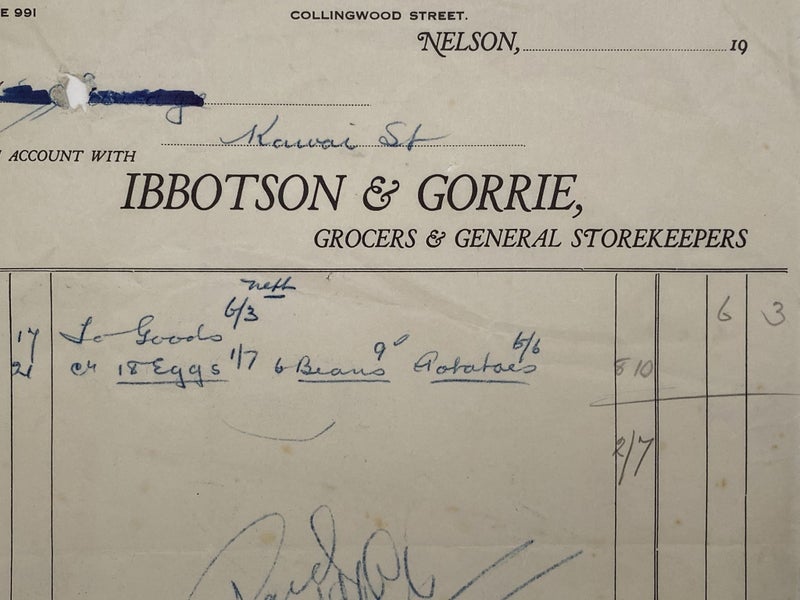 E 991
COLLINGWOOD STREET.
NELSON, 19
Kawai St
ACCOUNT WITH
IBBOTSON & GORRIE,
GROCERS & GENERAL STOREKEEPERS
nett
17 To Goods 6/3 6 3
21 cr 18 Eggs 1/7 6 Beans 9d Potatoes 6/6 8 10
2/7